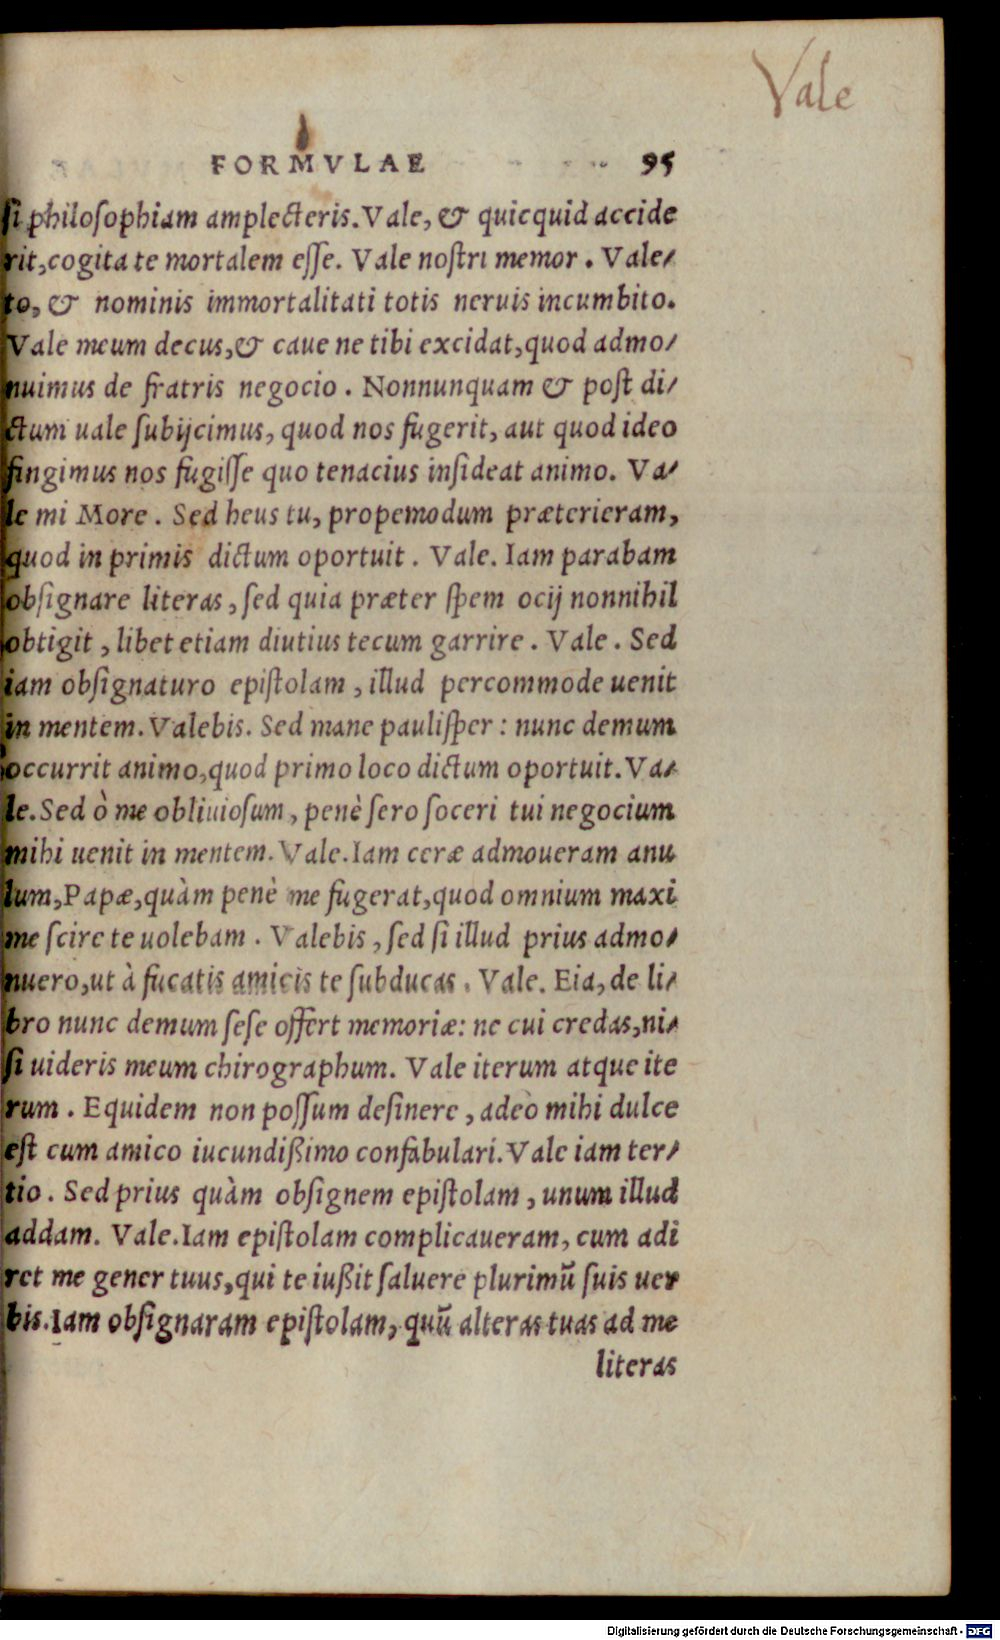 Vale
FORMVLAE 95
ſi philoſophiam amplecteris. Vale, & quicquid accide
rit, cogita te mortalem eſſe. Vale noſtri memor. Vale/
to, & nominis immortalitati totis neruis incumbito.
Vale meum decus, & caue ne tibi excidat, quod admo/
nuimus de fratris negocio. Nonnunquam & poſt di/
ctum uale ſubijcimus, quod nos fugerit, aut quod ideo
fingimus nos fugiſſe quo tenacius inſideat animo. Va/
le mi More. Sed heus tu, propemodum præterieram,
quod in primis dictum oportuit. Vale. Iam parabam
obſignare literas, ſed quia præter ſpem ocij nonnihil
obtigit, libet etiam diutius tecum garrire. Vale. Sed
iam obſignaturo epiſtolam, illud percommode uenit
in mentem. Valebis. Sed mane pauliſper: nunc demum
occurrit animo, quod primo loco dictum oportuit. Va/
le. Sed ò me obliuioſum, penè ſero ſoceri tui negocium
mihi uenit in mentem. Vale. Iam ceræ admoueram anu
lum, Papæ, quàm penè me fugerat, quod omnium maxi
me ſcire te uolebam. Valebis, ſed ſi illud prius admo/
nuero, ut à fucatis amicis te ſubducas. Vale. Eia, de li/
bro nunc demum ſeſe offert memoriæ: ne cui credas, ni/
ſi uideris meum chirographum. Vale iterum atque ite
rum. Equidem non poſſum deſinere, adeò mihi dulce
eſt cum amico iucundißimo confabulari. Vale iam ter/
tio. Sed prius quàm obſignem epiſtolam, unum illud
addam. Vale. Iam epiſtolam complicaueram, cum adi
ret me gener tuus, qui te iußit ſaluere plurimũ ſuis uer
bis. Iam obſignaram epiſtolam, quũ alteras tuas ad me
literas
Digitalisierung gefördert durch die Deutsche Forschungsgemeinschaft - DFG